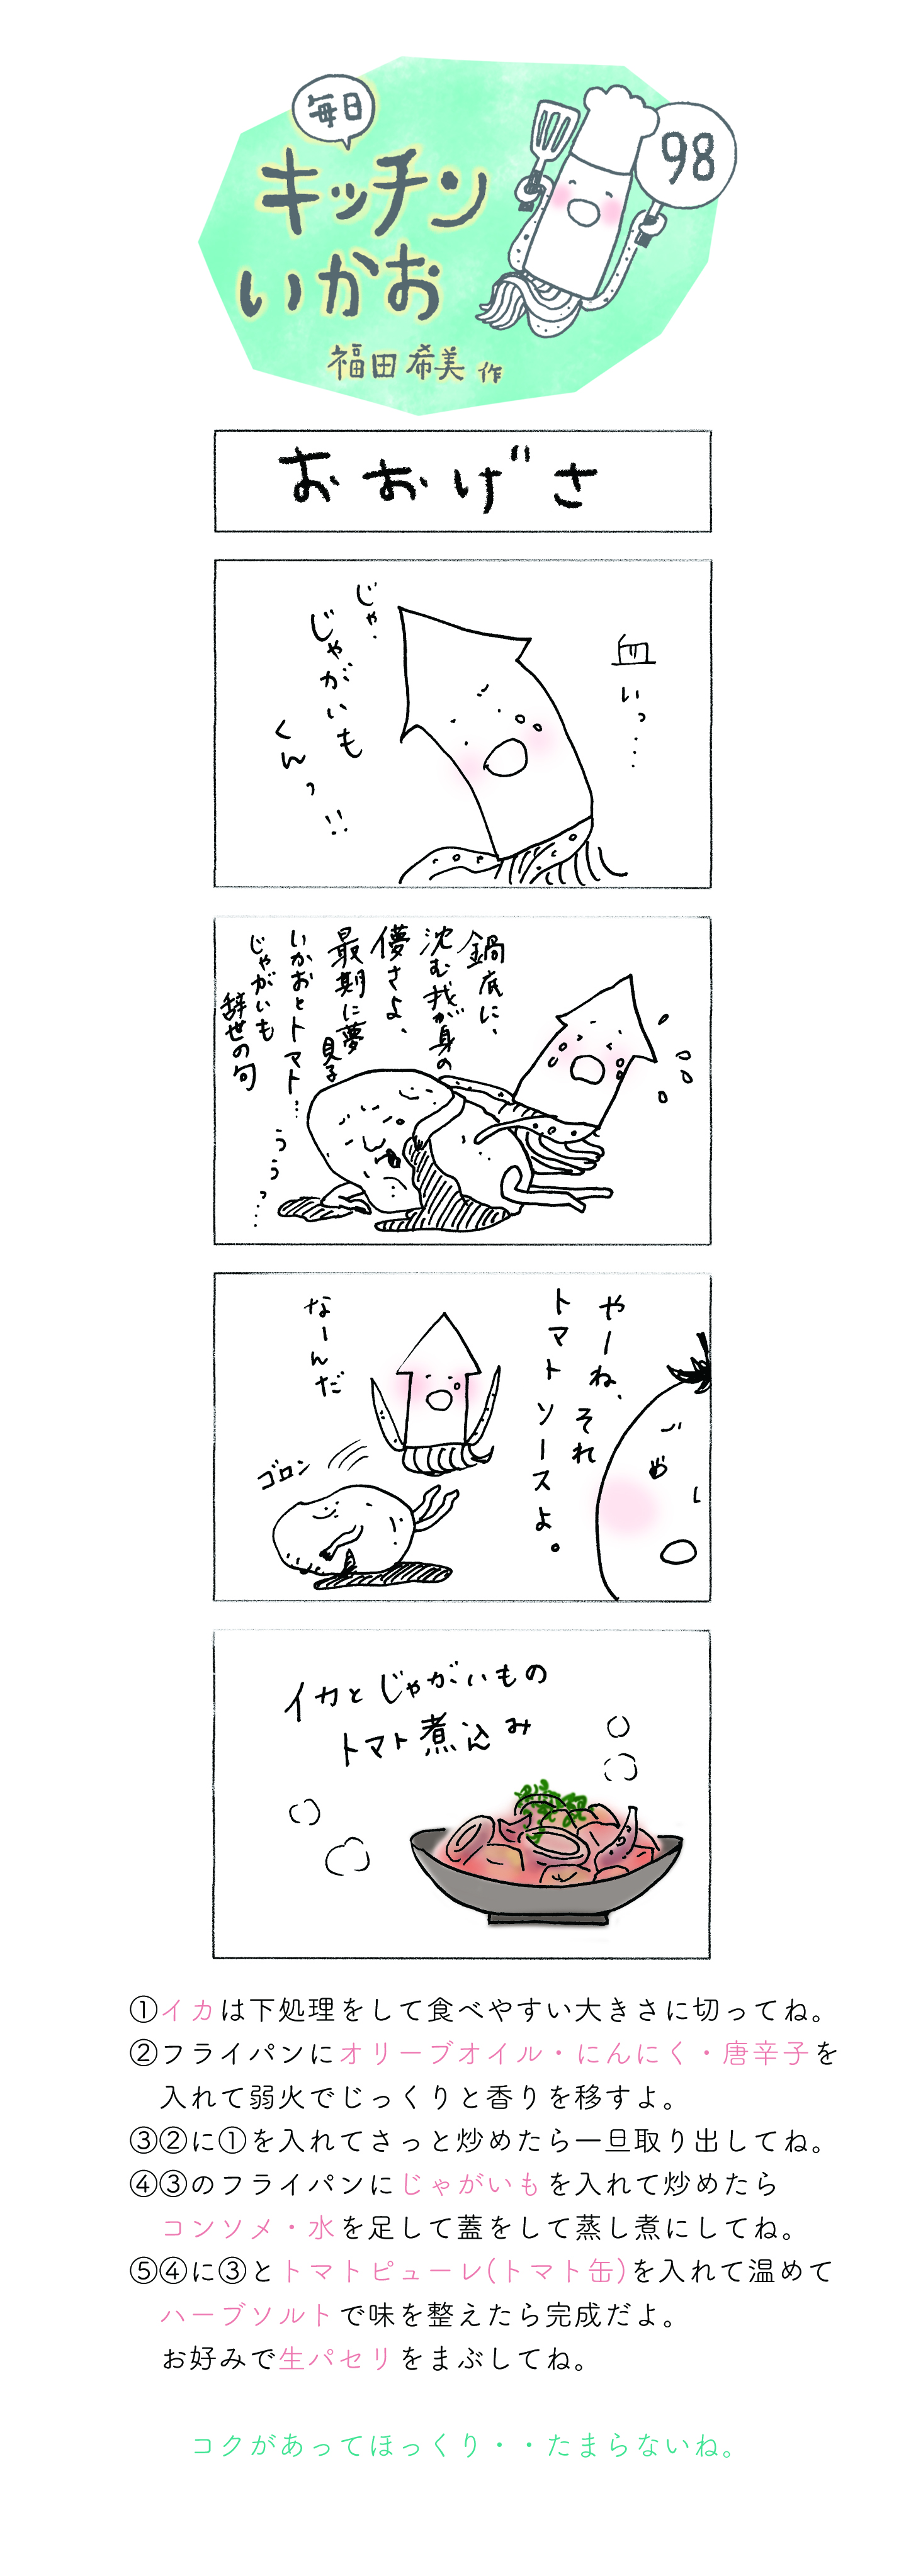 毎日
キッチン
いかお
98
福田希美 作
おおげさ
血いっ…
じゃ・
じゃがいも
くんっ!!
鍋底に、
沈む我が身の
儚さよ、
最期に夢見る
いかおとトマト…
じゃがいも
辞世の句
ううっ…
やーね、それ
トマトソースよ。
なーんだ
ゴロン
イカとじゃがいもの
トマト煮込み
①イカは下処理をして食べやすい大きさに切ってね。
②フライパンにオリーブオイル・にんにく・唐辛子を
入れて弱火でじっくりと香りを移すよ。
③②に①を入れてさっと炒めたら一旦取り出してね。
④③のフライパンにじゃがいもを入れて炒めたら
コンソメ・水を足して蓋をして蒸し煮にしてね。
⑤④に③とトマトピューレ(トマト缶)を入れて温めて
ハーブソルトで味を整えたら完成だよ。
お好みで生パセリをまぶしてね。
コクがあってほっくり・・たまらないね。